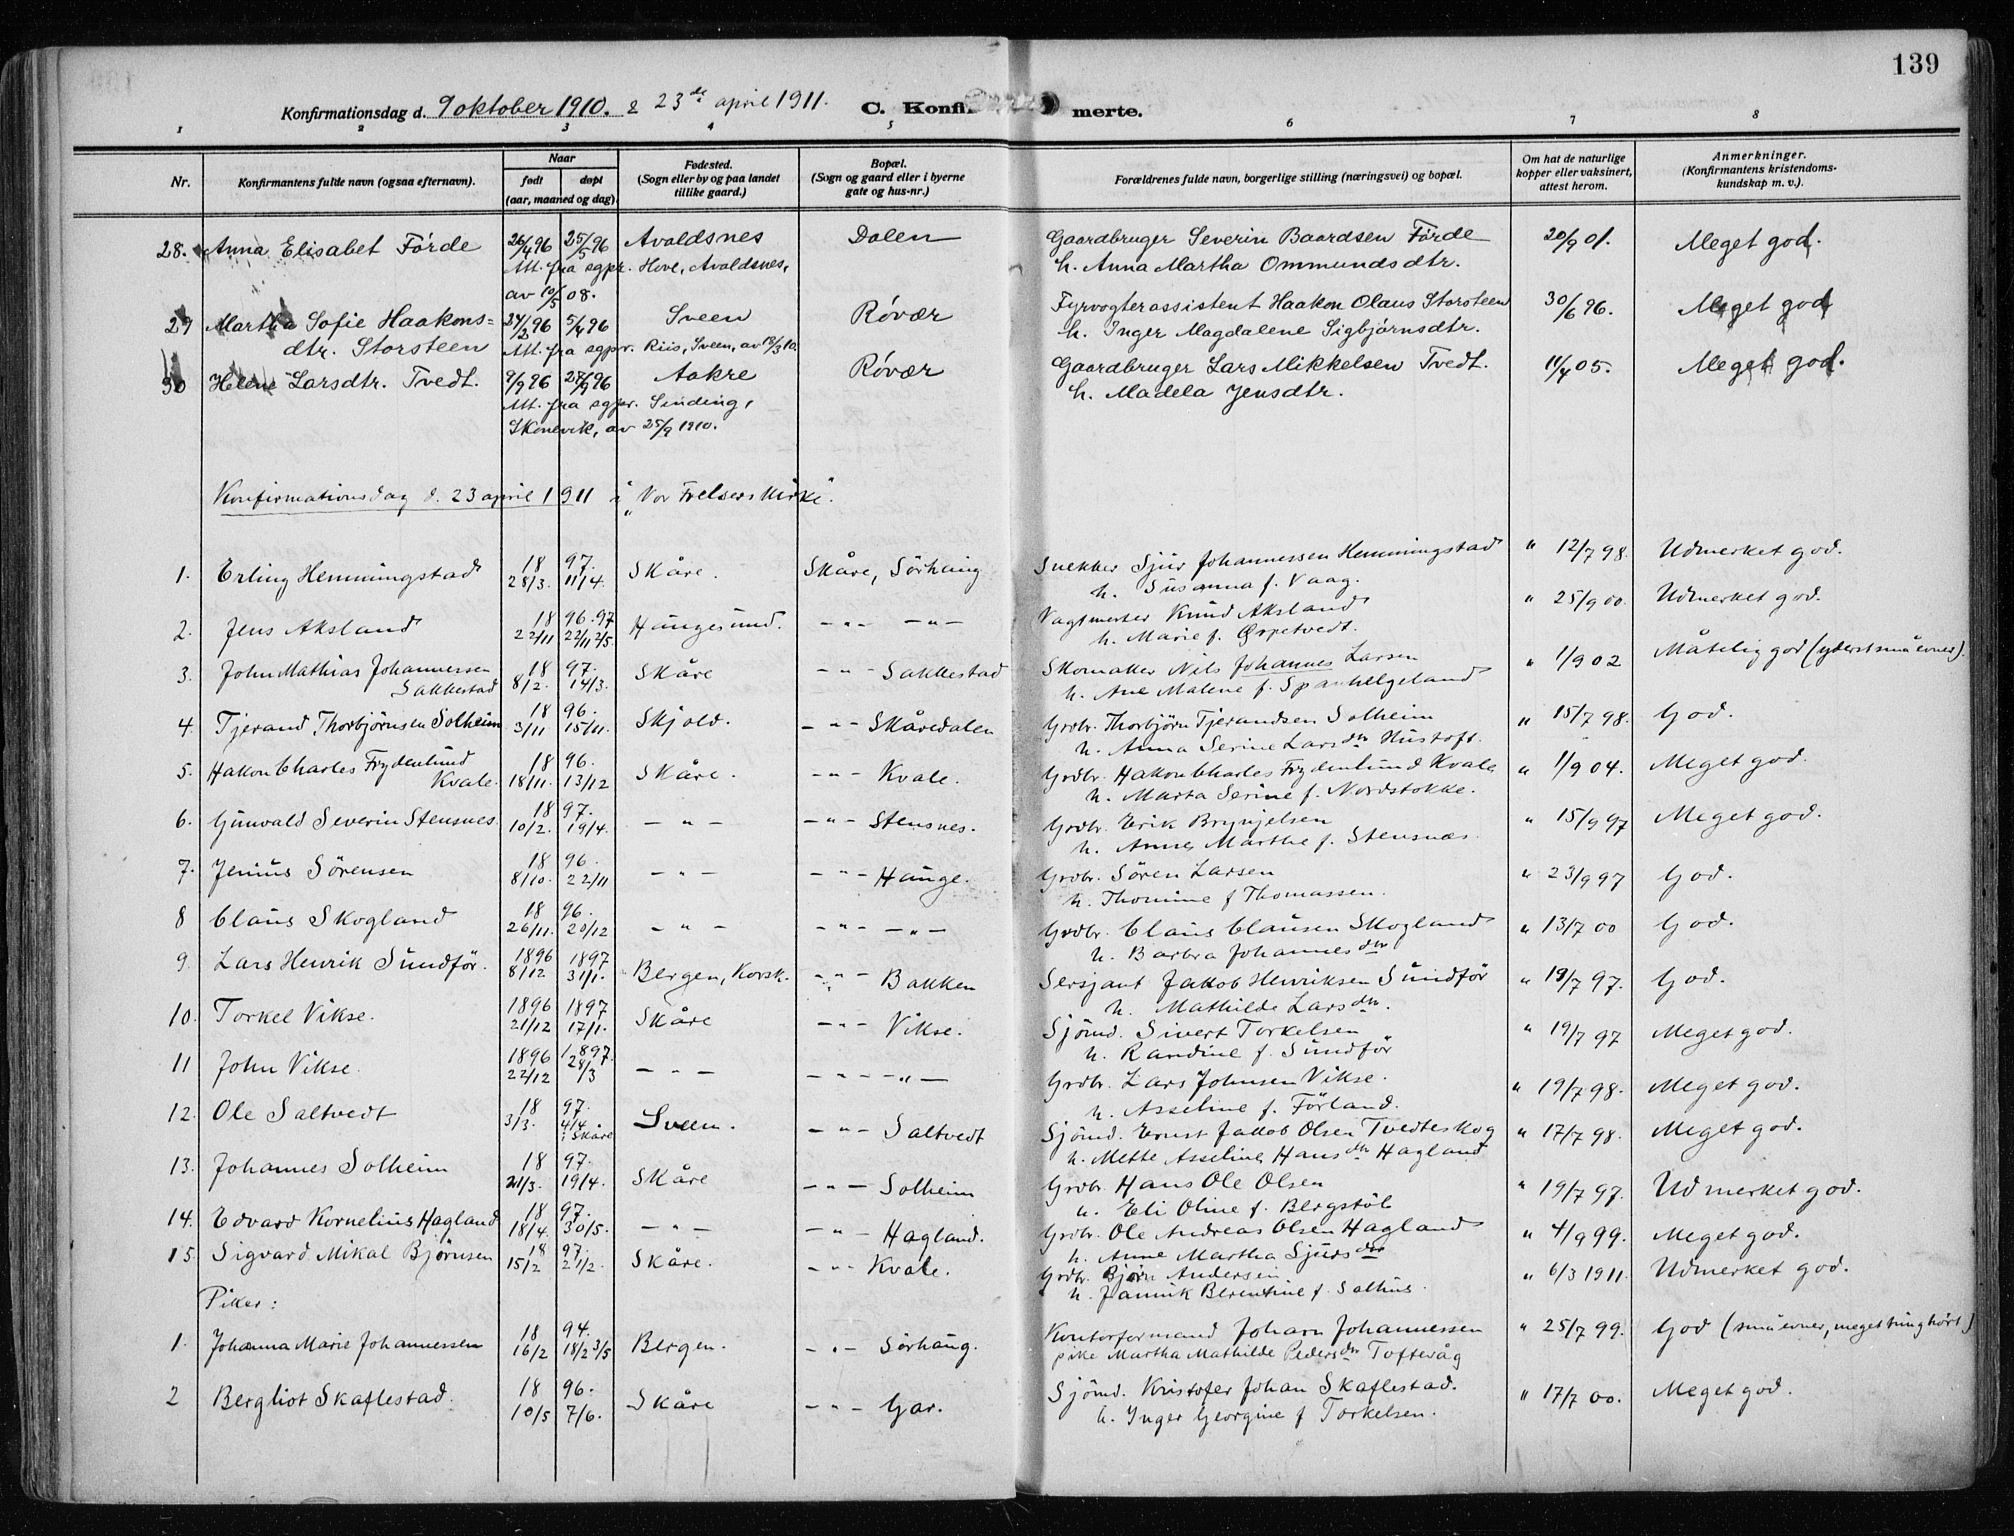 139
Konfirmationsdag d. 9 oktober 1910. & 23de april 1911. C. Konfirmerte.
1 2 3 4 5 6 7 8
Nr. Konfirmantens fulde navn (ogsaa efternavn). Naar født døpt (aar, maaned og dag). Fødested. (Sogn eller by og paa landet tillike gaard.) Bopæl. (Sogn og gaard eller i byerne gate og hus-nr.) Forældrenes fulde navn, borgerlige stilling (næringsvei) og bopæl. Om hat de naturlige kopper eller vaksinert, attest herom. Anmerkninger. (Konfirmantens kristendoms-kundskap m. v.).
28. Anna Elisabet Förde 26/4 96 25/5 96 Avaldsnes Dalen Gaardbruger Severin Baardsen Förde 20/9 01. Meget god.
Att. fra sgpr. Hove, Avaldsnes, h. Anna Martha Ommundsdtr.
av 10/5 08.
29 Martha Sofie Haakons= 24/2 96 5/4 96 Sveen Røvær Fyrvogterassistent Haakon Olaus Storsteen 30/6 96. Meget god
dtr. Storsteen Att. fra sgpr. Riis, Sveen, av 18/3 10. h. Inger Magdalene Sigbjørnsdtr.
30 Helene Larsdtr. Tvedt. 9/9 96 27/9 96 Aakre Røvær Gaardbruger Lars Mikkelsen Tvedt. 11/4 05. Meget god.
Att. fra sgpr. Sinding, h. Madela Jensdtr.
Skonevik, av 25/9 1910.
Konfirmationsdag d. 23 april 1911 i "Vor Frelsers Kirke".
1. Erling Hemmingstad 18 97. 28/3. 11/4. Skåre. Skåre, Sörhaug Snekker Sjur Johannessen Hemmingstad " 12/7 98. Udmerket god.
h. Susanna f. Vaag.
2. Jens Aksland 18 96. 97 22/11 22/11 2/5 Haugesund. - " - - " - Vagtmester Knud Aksland " 25/9 00. Udmerket god.
h. Marie f. Espetvedt.
3. John Mathias Johannessen 18 97. 8/2. 14/3. Skåre - " - Sakkestad Skomaker Nils Johannes Larsen " 1/9 02 Måtelig god (yderst små evner).
Sakkestad h. Ane Malene f. Spanhelgeland
4. Tjerand Thorbjørnsen Solheim 18 96. 3/11 15/11. Skjold. - " - Skåredalen Grdbr. Thorbjörn Tjerandsen Solheim " 15/7 98. God.
h. Anna Serine Larsdtr Hustoft.
5. Hakon Charles Frydenlund 18 96. 18/11. 13/12 Skåre. - " - Kvale. Grdbr. Hakon Charles Frydenlund Kvale " 1/9 04. Meget god.
Kvale. h. Marta Serine f. Nordstokke.
6. Gunvald Severin Stensnes 18 97. 10/2. 19/4. - " - - " - Stensnes. Grdbr. Erik Brynjelsen " 15/9 97 Meget god.
h. Anne Marthe f. Stensnæs.
7. Jenius Sörensen 18 96. 8/10. 22/11 - " - - " - Hauge. Grdbr. Sören Larsen " 23/9 97 God.
h. Thomine f Thomassen.
8 Claus Skogland 18 96. 26/11. 20/12 - " - - " - - " - Grdbr. Claus Clausen Skogland " 13/7 00 God.
h. Barbra Johannesdtr
9. Lars Henrik Sundför. 1896 1897 8/12 31/1. Bergen, Korsk. - " - Bakken Sersjant Jakob Henriksen Sundför " 19/7 97. God.
h. Mathilde Larsdtr.
10. Torkel Vikse. 1896 1897 21/12 17/1. Skåre - " - Vikse. Sjömd. Sivert Torkelsen " 19/7 97 Meget god.
h. Randine f. Sundför
11 John Vikse. 1896 1897. 22/12 28/3 - " - - " - - " - Grdbr. Lars Johnsen Vikse. " 19/7 98. Meget god.
h. Asseline f. Förland.
12. Ole Saltvedt 18 97. 3/3. 4/4 i Skåre Sveen. - " - Saltvedt Sjömd. Ernst Jakob Olsen Tvedteskog " 17/7 98. Meget god.
h. Mette Asseline Hansdtr Hagland
13. Johannes Solheim 18 97. 21/3. 19/4. Skåre - " - Solheim Grdbr. Hans Ole Olsen " 19/7 97. Udmerket god.
h. Eli Oline f. Bergstöl
14. Edvard Kornelius Hagland 18 97. 18/4. 30/5. - " - - " - Hagland. Grdbr. Ole Andreas Olsen Hagland " 4/9 99. Meget god.
h. Anne Martha Sjursdtr
15. Sigvard Mikal Bjørnsen 18 97. 15/2 21/2. Skåre. - " - Kvale. Grdbr. Björn Andersen " 6/3 1911. Udmerket god.
h. Jannik Berentine f. Salhus.
Piker:
1. Johanna Marie Johannessen 18 94. 16/2 18/2 3/5 Bergen. - " - Sörhaug. Kontorformand Johan Johannessen " 25/7 99. God (små evner, meget tunghört)
pike Martha Mathilde Pedersdtr Toftevåg
2 Bergliot Skaflestad. 18 96. 10/5 7/6. Skåre - " - Gar. Sjömd. Kristofer Johan Skaflestad. " 17/7 00. Meget god.
h. Inger Georgine f Torkelsen.